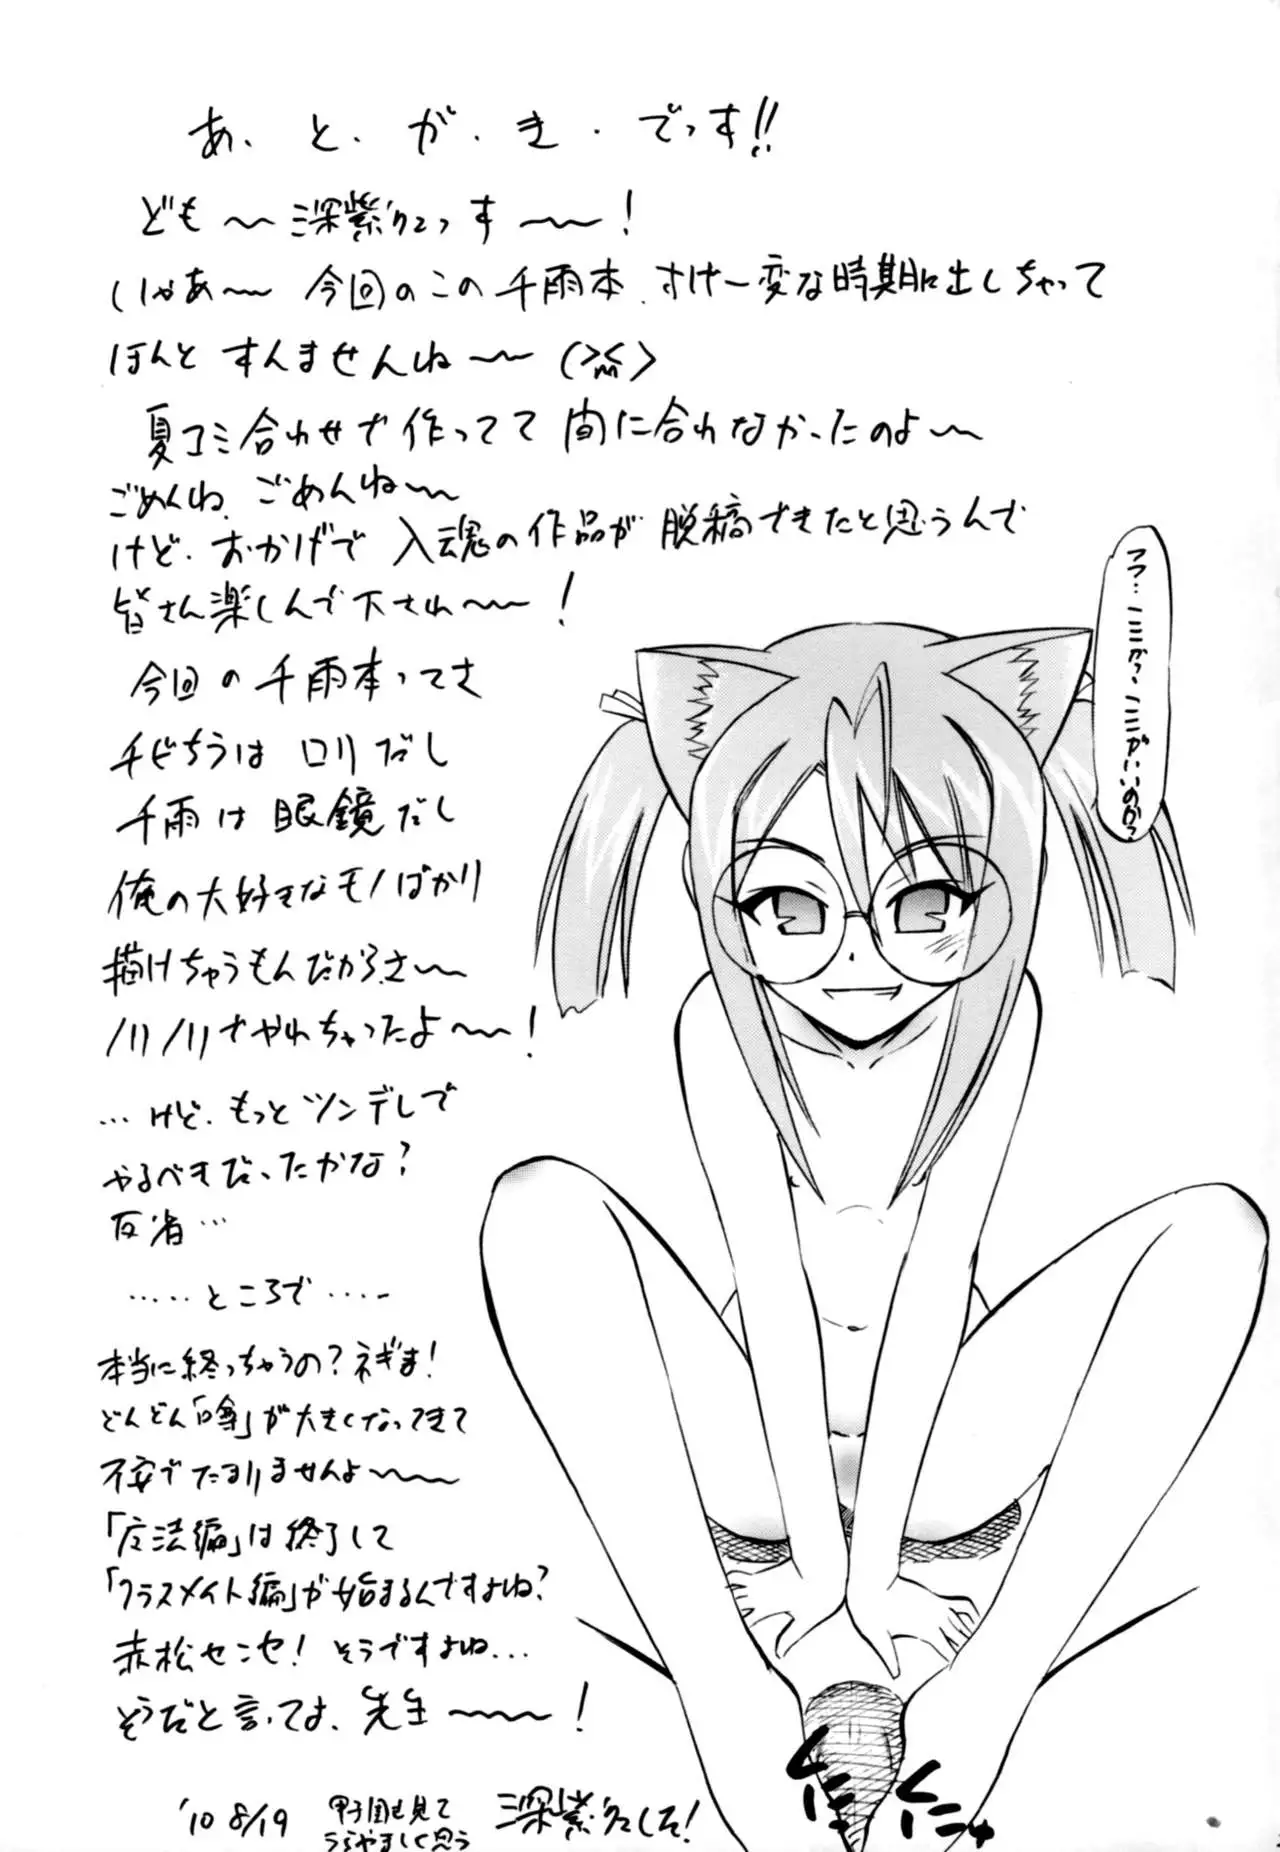 あ・と・が・き・でっす!!
ども〜深紫クロっす〜!
いやあ〜今回のこの千雨本、すげー変な時期に出しちゃって
ほんとすんませんね〜(>m<)
夏コミ合わせで作ってて間に合わなかったのよ〜
ごめんね、ごめんね〜
けど、おかげで入魂の作品が脱稿できたと思うんで
皆さん楽しんで下され〜!
今回の千雨本ってさ
千びちうはロリだし
千雨は眼鏡だし
俺の大好きなモノばかり
描けちゃうもんだからさ〜
ノリノリでやれちゃったよ〜!
…けど、もっとツンデレして
やるべきだったかな?
反省…
……ところで……
本当に終っちゃうの?ネギま!
どんどん「噂」が大きくなってきて
不安でたまりませんよ〜
「魔法編」は終了して
「クラスメイト編」が始まるんですよね?
赤松センセ!そうですよね…
そうだと言ってよ、先生〜!
'10 8/19
甲子園を見て
うらやましく思う
深紫
フフ…ここがっ
ここがいいのか?
くにゅ